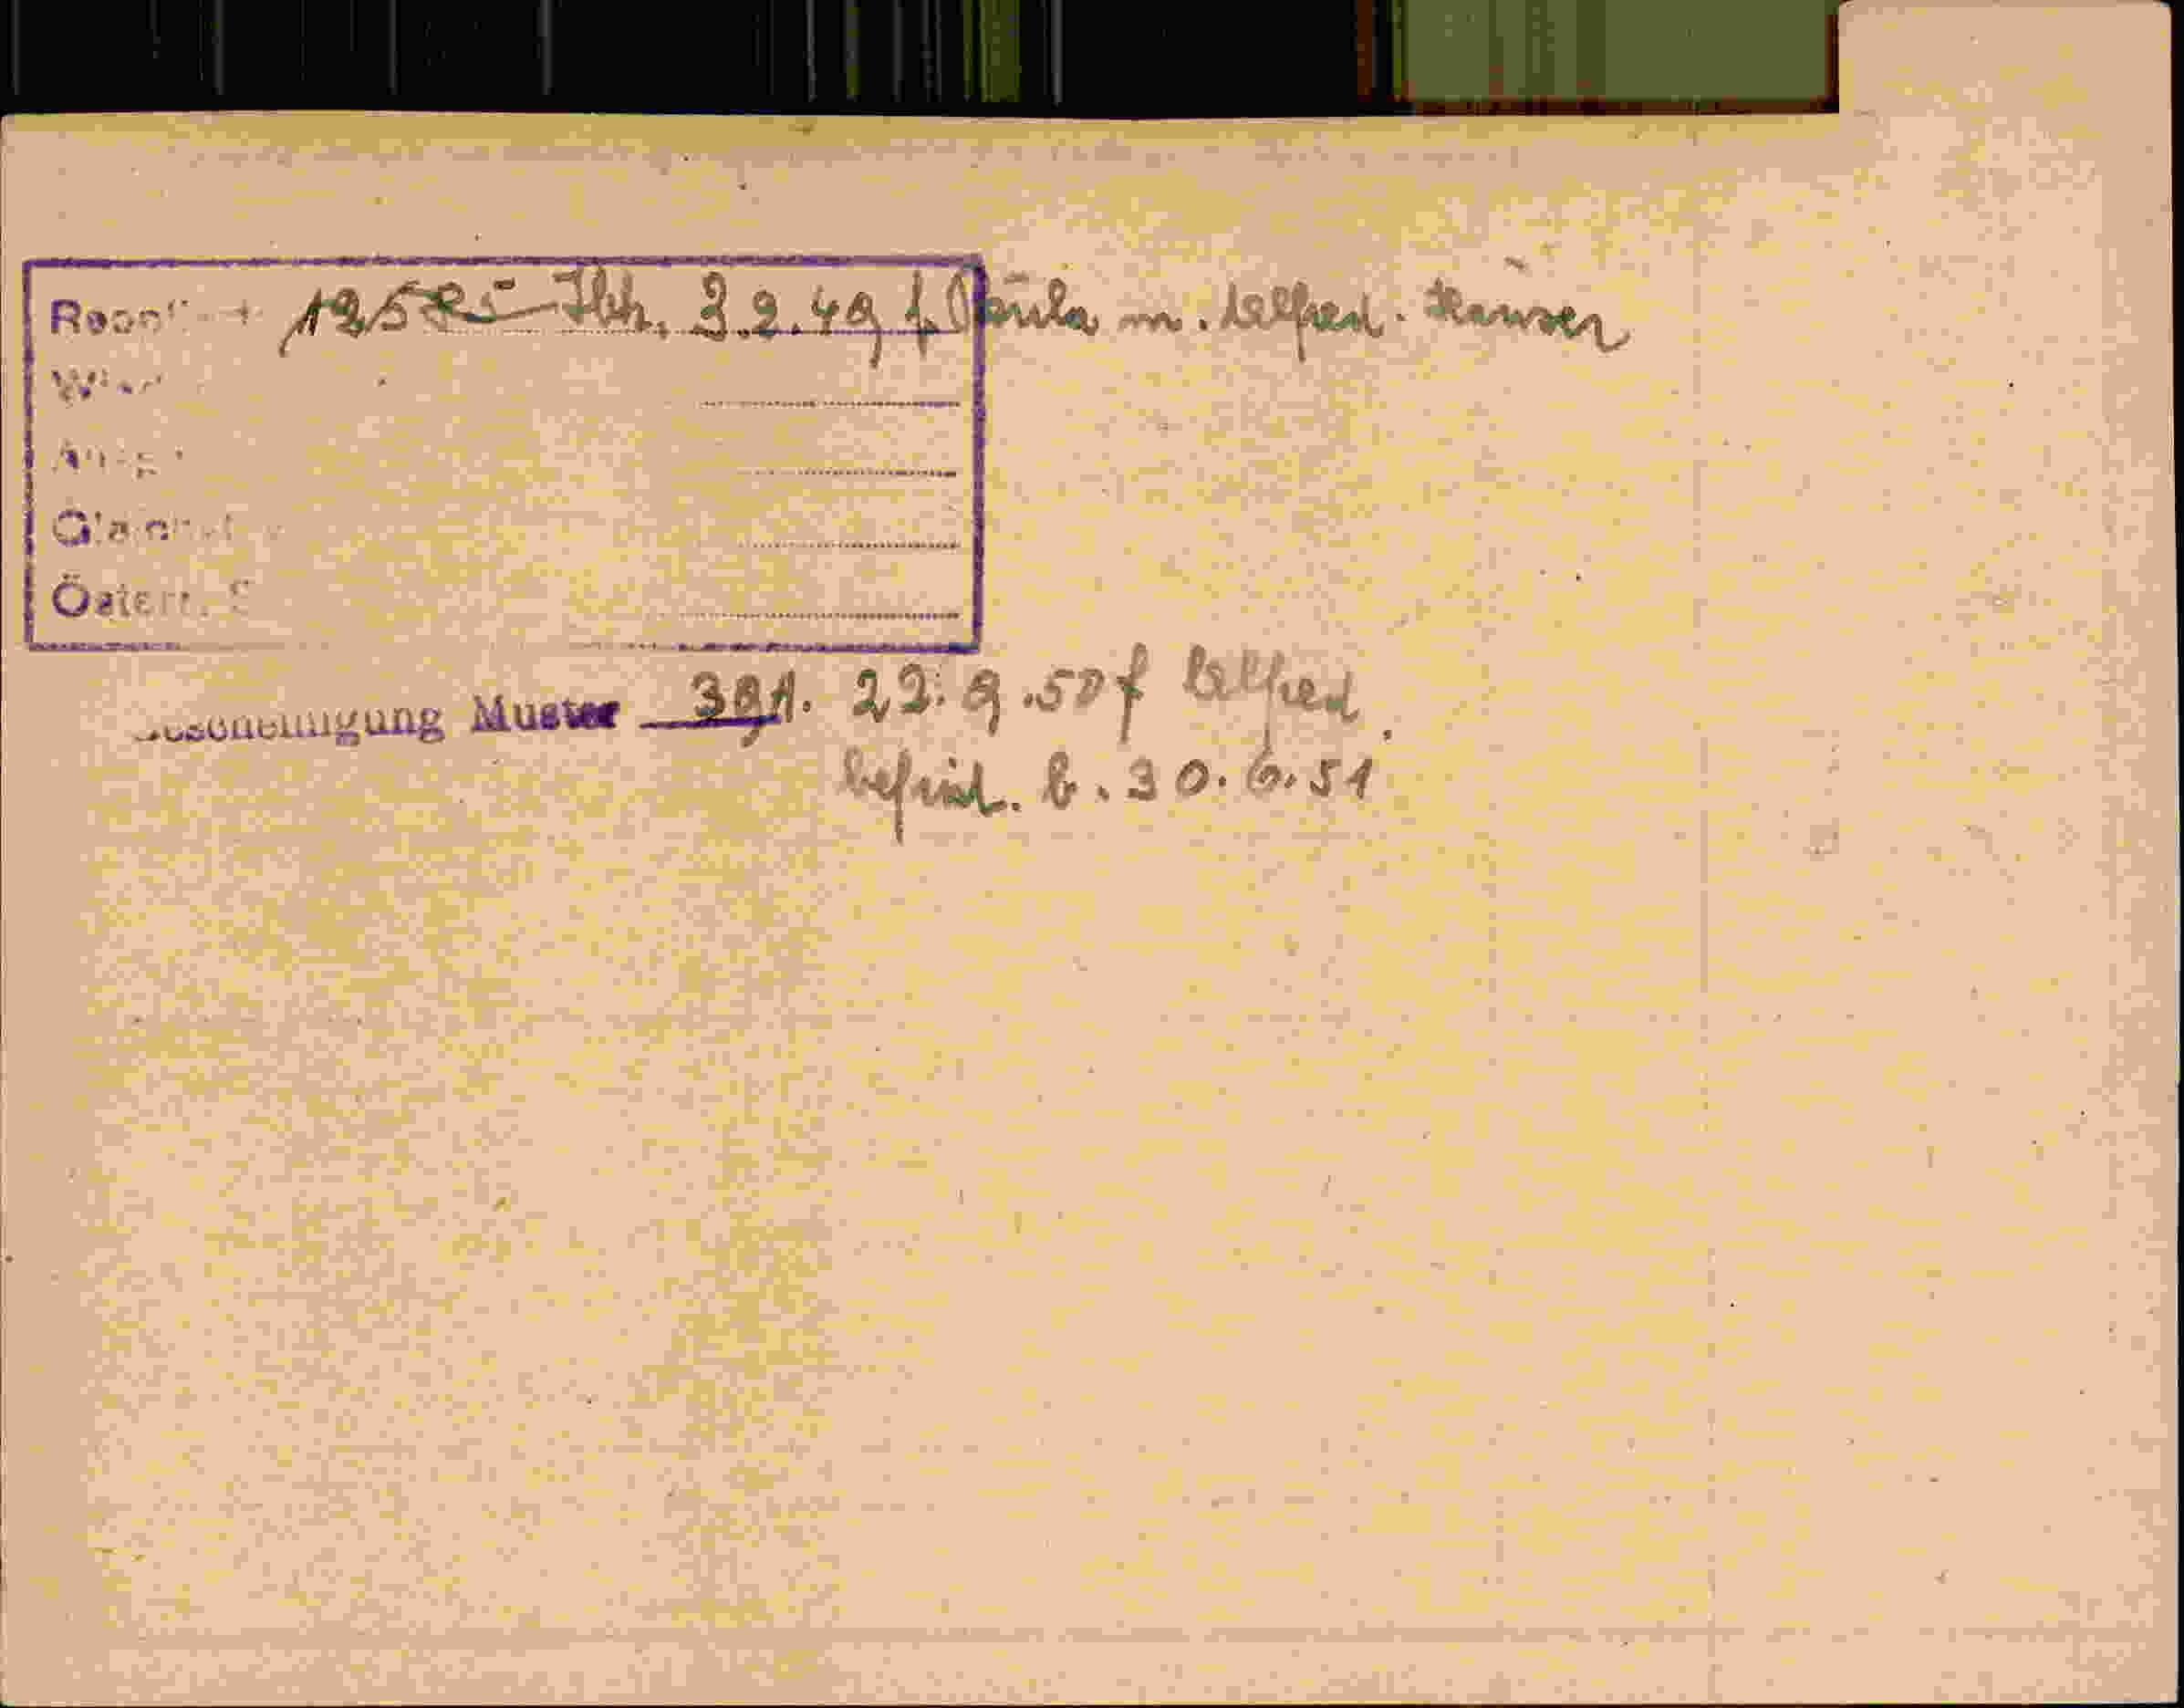 12585 Ibk. 3.2.49 f. Paula m. Alfred. Hauser
Österr.
Bescheinigung Muster 39A. 22.9.50 f Alfred.
befrist. b. 30.6.51